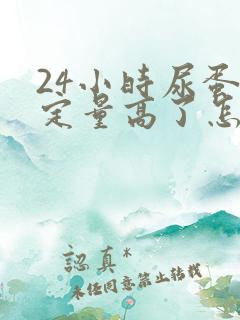 24小时尿蛋
定量高了怎
認真*
未经同意禁止转载